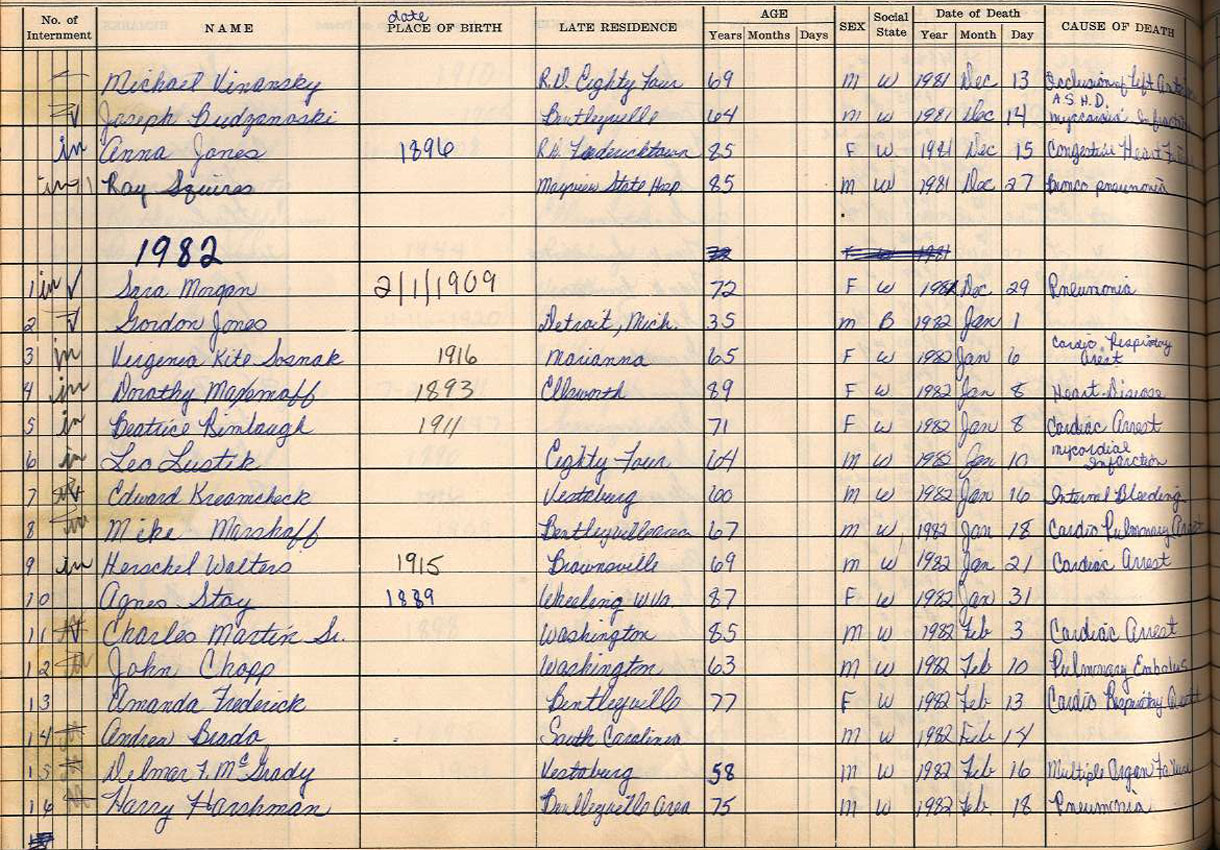 No. of Internment NAME date PLACE OF BIRTH LATE RESIDENCE AGE Years Months Days SEX Social State Date of Death Year Month Day CAUSE OF DEATH
Michael Vinansky R.D. Eighty Four 69 m w 1981 Dec 13 Occlusion of Left
Joseph Budzanoski Bentleyville 64 m w 1981 Dec 14 A.S.H.D. myocardial Infarction
in Anna Jones 1896 R.D. Fredericktown 85 F W 1981 Dec 15 Congestive Heart
Ray Squires Mayview State Hosp 85 m W 1981 Dec 27 Bronco pneumonia
1982
1 in √ Sara Morgan 2/1/1909 72 F W 1981 Dec 29 Pneumonia
2 √ Gordon Jones Detroit, Mich. 35 m B 1982 Jan 1
3 in Virginia Kite Sosnak 1916 Marianna 65 F W 1982 Jan 6 Cardio Respitory Arest
4 in Dorothy 1893 Ellsworth 89 F W 1982 Jan 8 Heart Disease
5 in Beatrice Rimlaugh 1911 71 F W 1982 Jan 8 Cardiac Arrest
6 in Leo Lustik Eighty-Four 64 m w 1982 Jan 10 mycordial Infarction
7 Edward Kreamcheck Vestaburg 60 m w 1982 Jan 16 Internal Bleeding
8 in Mike Marshaff Bentleyville area 67 m w 1982 Jan 18 Cardio Pulmonary Arrest
9 in Herschel Walters 1915 Brownsville 69 m w 1982 Jan 21 Cardiac Arrest
10 Agnes Stay 1889 Wheeling W.Va. 87 F w 1982 Jan 31
11 Charles Martin Sr. Washington 85 m w 1982 Feb 3 Cardiac Arrest
12 John Chopp Washington 63 m w 1982 Feb 10 Pulmonary Embolus
13 Amanda Frederick Bentleyville 77 F W 1982 Feb 13 Cardio Respiratry Arrest
14 Andrew Brada South Carolina m w 1982 Feb 14
15 Delmar F. McGrady Vestaburg 58 m W 1982 Feb 16 Multiple Organ Failure
16 Harry Harshman Bentleyville Area 75 m W 1982 Feb. 18 Pneumonia